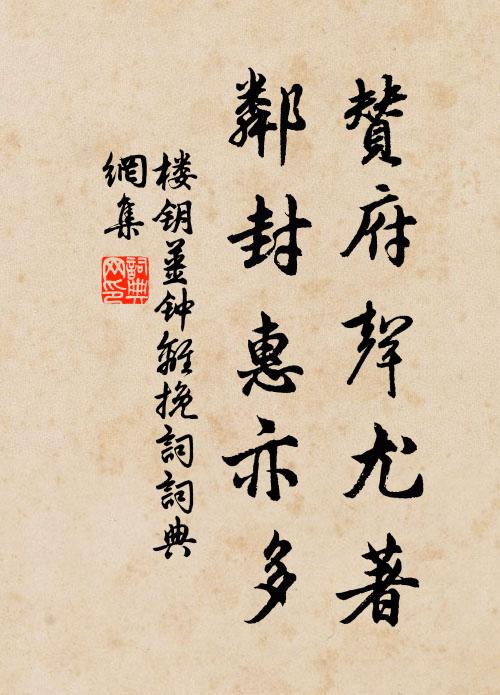 贊府聲尤著
鄰封惠亦多
楼钥姜钟離挽詞詞典
網集
詞典
网印